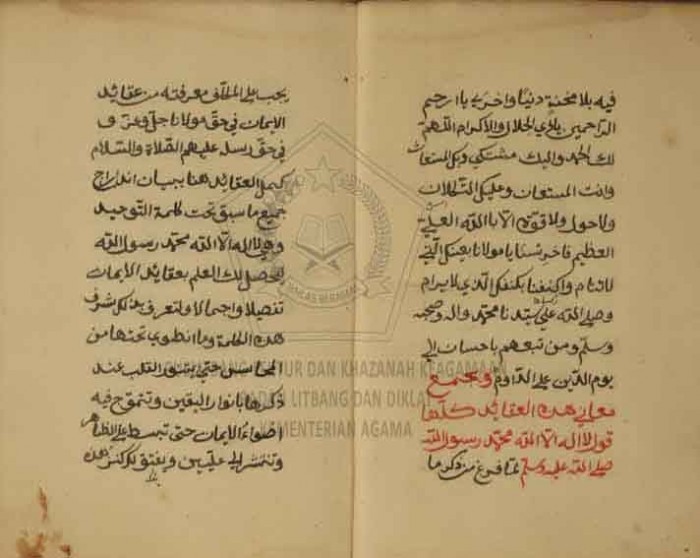 فيه بلا محنة دنيا واخرى يا ارحم
الراحمين ياذي الجلال والاكرام اللهم
لك الحمد واليك مشتكى وبك المستعاث
وانت المستعان وعليك التكلان
ولا حول ولا قوة الا باالله العلي
العظيم فاحرسنا يا مولانا بعينك التي
لاتنام واكنفنا بكنفك الذي لا يرام
وصلي الله على سيدنا محمد واله وصحبه
وسلم ومن تبعهم باحسان الى
يوم الدين على الدوام ويجمع
معاني هذه العقائد كلها
قول لا اله الا الله محمد رسول الله
صلي الله عليه وسلم لما فرغ من ذكر ما
يجب على المكلف معرفته من عقائد
الايمان في حق مولانا جل وعز و
في حق رسله عليهم الصلاة والسلام
كمل العقائد هنا ببيان اندراج
جميع ما سبق تحت كلمة التوحيد
وهي لا اله الا الله محمد رسول الله
ليحصل لك العلم بعقائد الايمان
تفصيلا واجمالا ولتعرف بذلك شرف
هذه الكلمة وما انطوي تحتها من
المحاسن حتى يتنور القلب عند
ذكرها بانوار اليقين وتتموج فيه
اضواء الايمان حتى تبسط على الظاهر
وتنتشر الى عليين
PUSLITBANG LEKTUR DAN KHAZANAH KEAGAMAAN
BADAN LITBANG DAN DIKLAT
KEMENTERIAN AGAMA